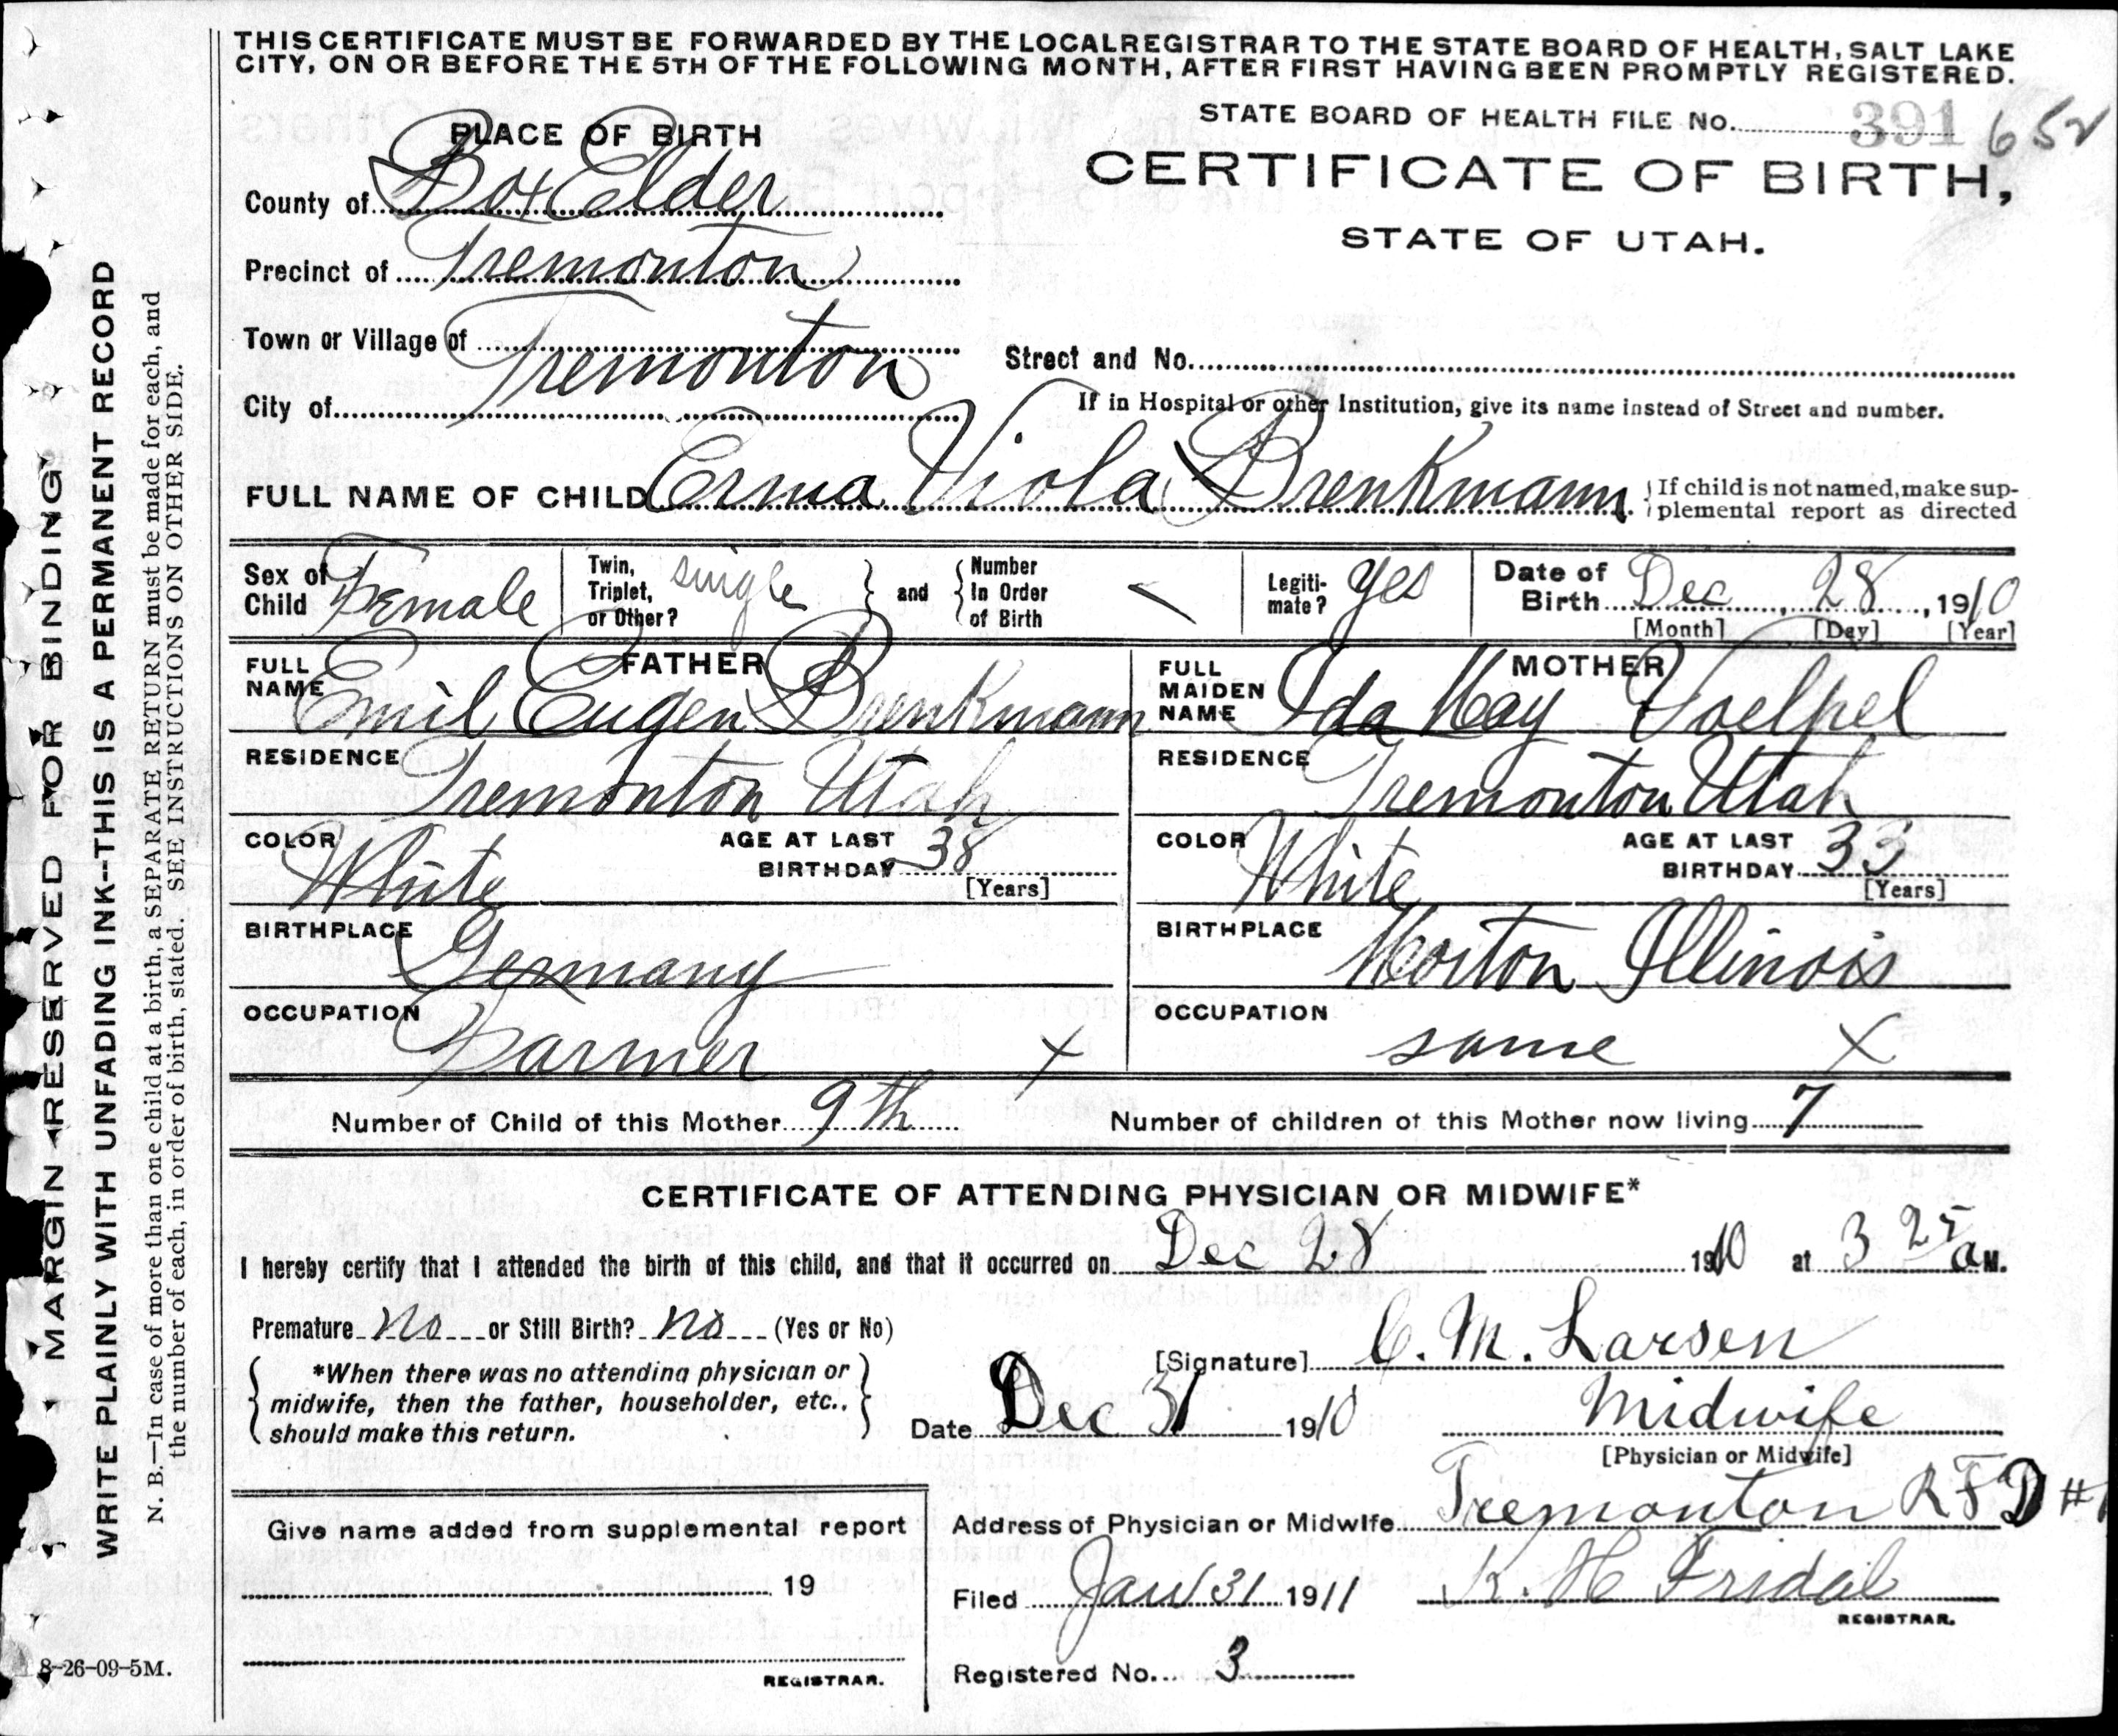 THIS CERTIFICATE MUST BE FORWARDED BY THE LOCAL REGISTRAR TO THE STATE BOARD OF HEALTH, SALT LAKE
CITY, ON OR BEFORE THE 5TH OF THE FOLLOWING MONTH, AFTER FIRST HAVING BEEN PROMPTLY REGISTERED.
STATE BOARD OF HEALTH FILE No. 391 652
PLACE OF BIRTH
CERTIFICATE OF BIRTH,
STATE OF UTAH.
County of Box Elder
Precinct of Tremonton
Town or Village of Tremonton
Street and No.
City of
If in Hospital or other Institution, give its name instead of Street and number.
FULL NAME OF CHILD Erma Viola Brenkmann
If child is not named, make sup-
plemental report as directed
Sex of Child Female
Twin, Triplet, or Other? single
and Number In Order of Birth
Legiti-mate? yes
Date of Birth Dec, 28, 1910
[Month] [Day] [Year]
FATHER
FULL NAME Emil Eugen Brenkmann
RESIDENCE Tremonton Utah
COLOR White
AGE AT LAST BIRTHDAY 38
[Years]
BIRTHPLACE Germany
OCCUPATION Farmer X
MOTHER
FULL MAIDEN NAME Ida May Voelpel
RESIDENCE Tremonton Utah
COLOR White
AGE AT LAST BIRTHDAY 33
[Years]
BIRTHPLACE Morton Illinois
OCCUPATION same X
Number of Child of this Mother 9th
Number of children of this Mother now living 7
CERTIFICATE OF ATTENDING PHYSICIAN OR MIDWIFE*
I hereby certify that I attended the birth of this child, and that it occurred on Dec 28 1910 at 3 25 a M.
Premature no or Still Birth? no (Yes or No)
*When there was no attending physician or
midwife, then the father, householder, etc..
should make this return.
[Signature] C. M. Larsen
Date Dec 31 1910
Midwife
[Physician or Midwife]
Address of Physician or Midwife Tremonton RFD #1
Give name added from supplemental report
19
REGISTRAR.
Filed Jan 31 1911 K. H Fridal
REGISTRAR.
Registered No. 3
MARGIN RESERVED FOR BINDING
WRITE PLAINLY WITH UNFADING INK--THIS IS A PERMANENT RECORD
N. B.—In case of more than one child at a birth, a SEPARATE RETURN must be made for each, and
the number of each, in order of birth, stated. SEE INSTRUCTIONS ON OTHER SIDE.
8-26-09-5M.